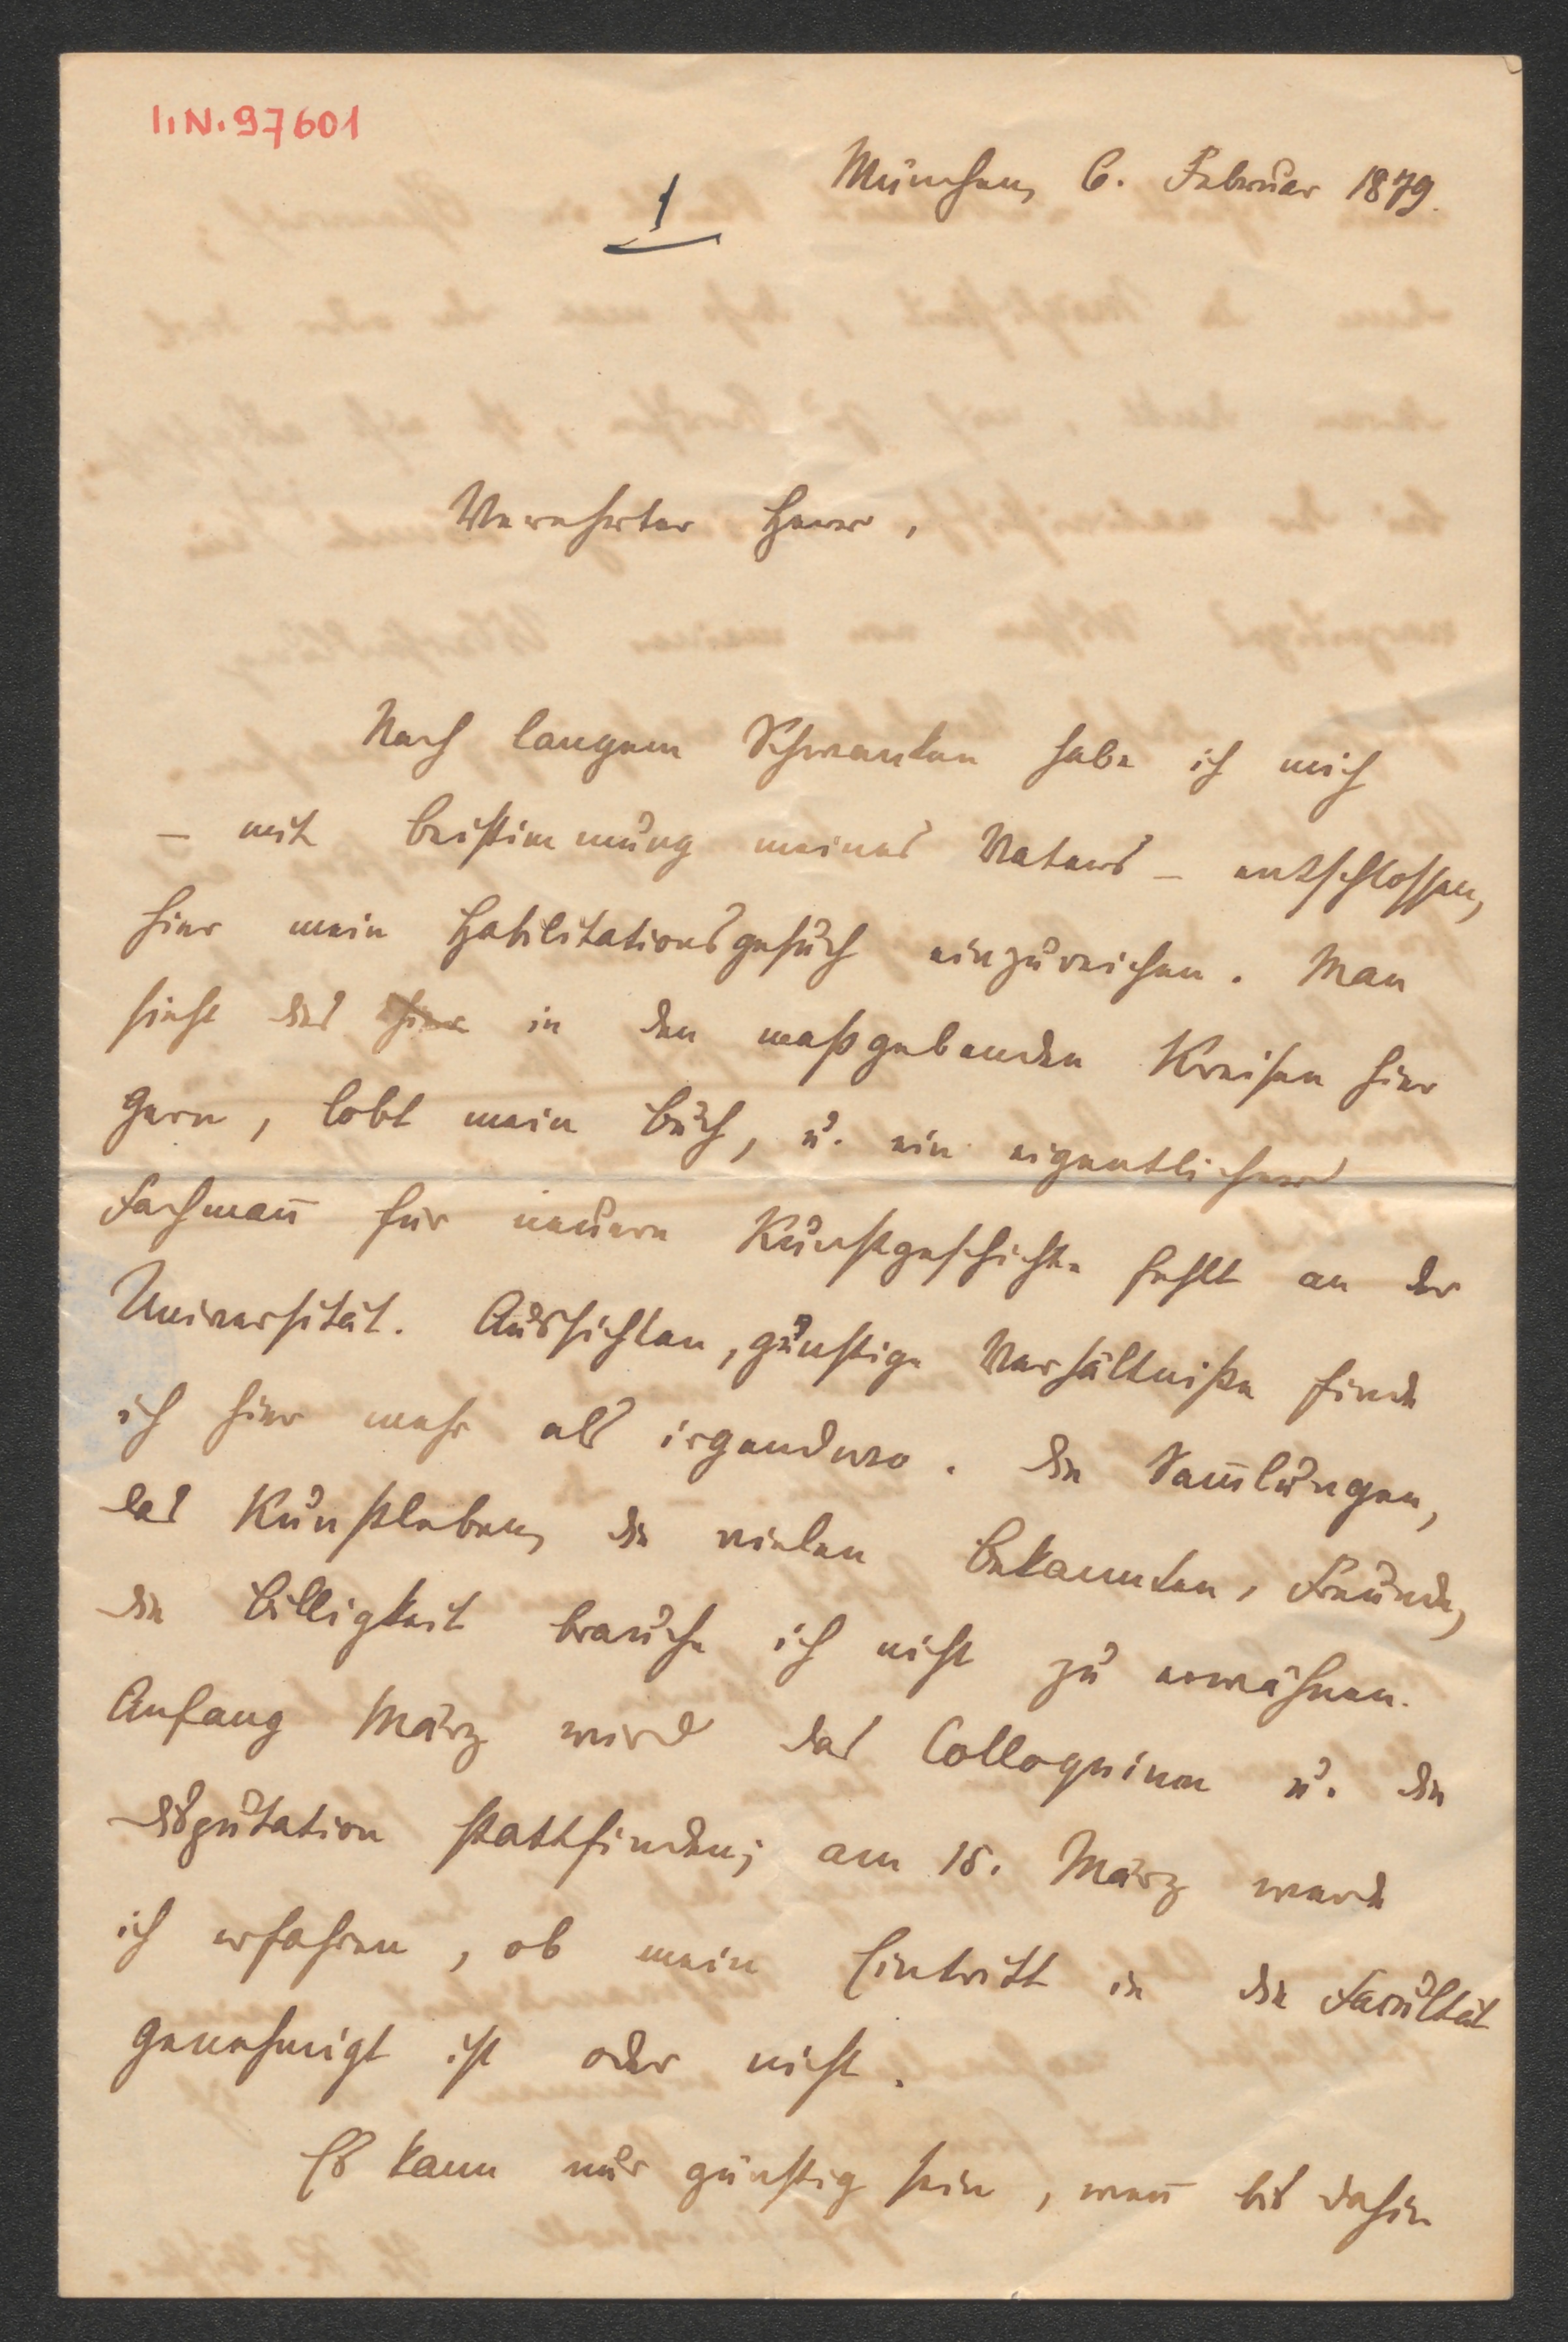 I.N. 97601
München, 6. Februar 1879.
1
Verehrter Herr,
Nach langem Schwanken habe ich mich
– mit Beistimmung meines Vaters – entschlossen,
hier mein Habilitationsgesuch einzureichen. Man
sieht das hier in den maßgebenden Kreisen hier
gern, lobt mein Buch, u. ein eigentlicher
Fachman̄ für neuere Kunstgeschichte fehlt an der
Universität. Aussichten, günstige Verhältniße finde
ich hier mehr als irgendwo. Die Sam̄lungen,
das Kunstleben, die vielen Bekannten, Freunde,
die Billigkeit brauche ich nicht zu erwähnen.
Anfang März wird das Colloquium u. die
Disputation stattfinden; am 15. März werde
ich erfahren, ob mein Eintritt in die Facultät
genehmigt ist oder nicht.
Es kann nur günstig sein, wen̄ bis dahin